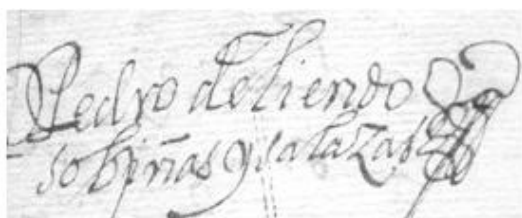 Pedro de liendo
sobiñas y salazar